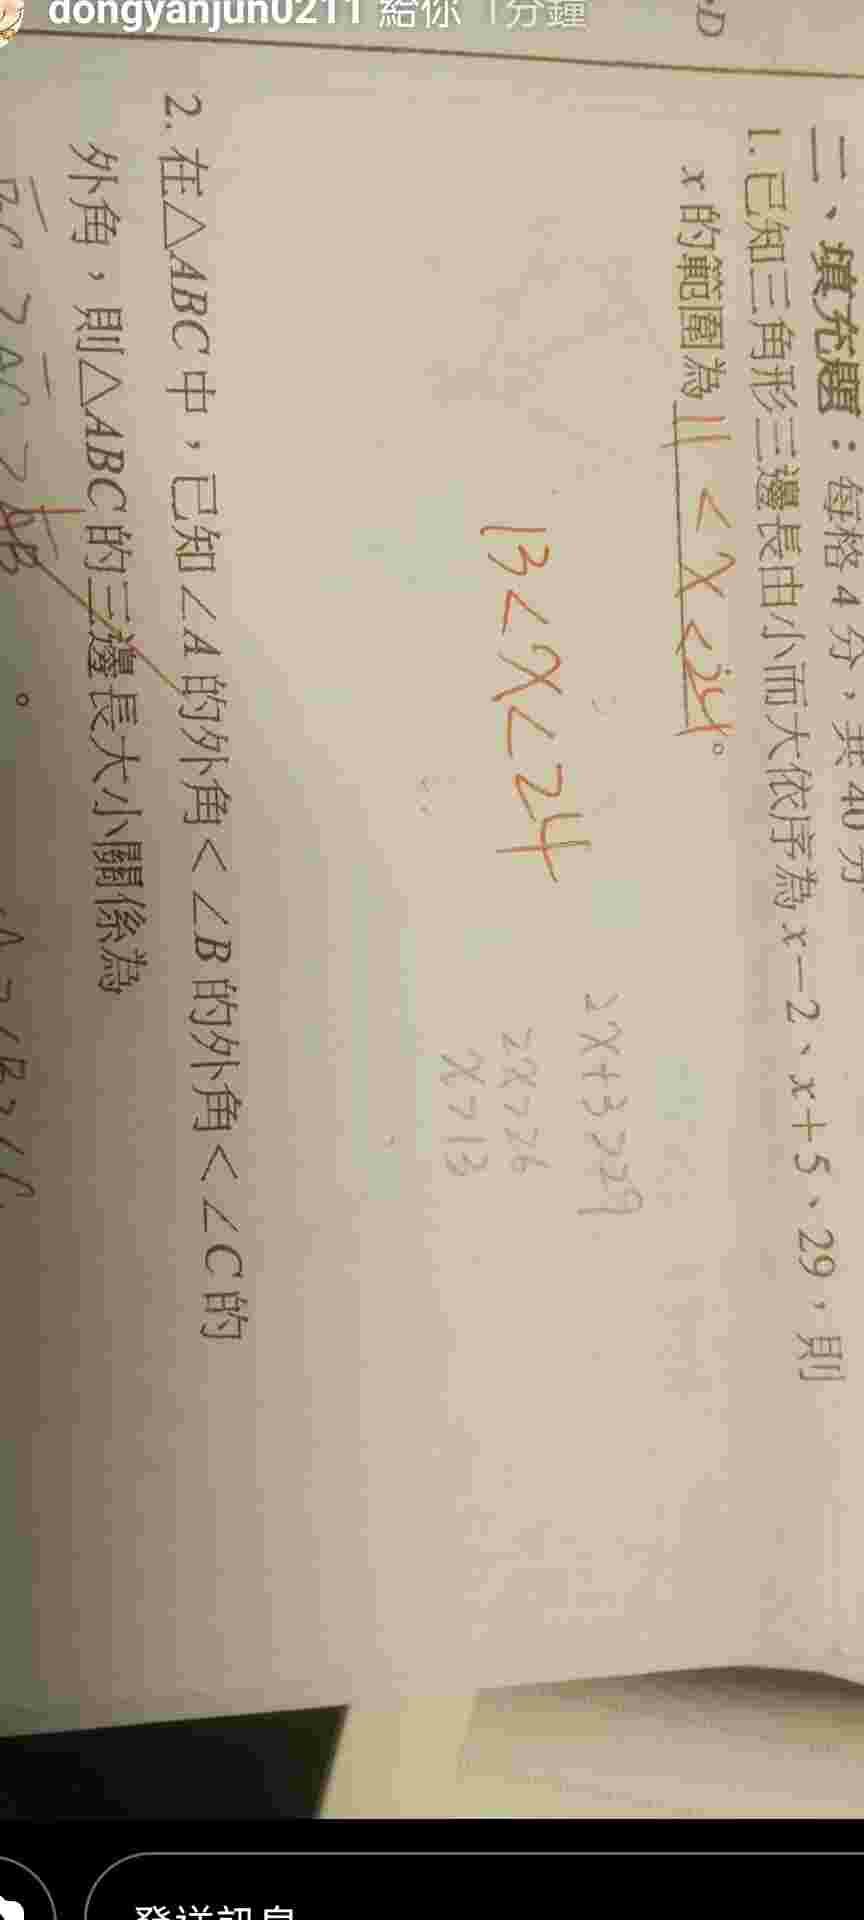 dongyanjun0211 給你 1分鐘
D
二、填充題：每格 4 分，共 40 分
1. 已知三角形三邊長由小而大依序為 x－2、x＋5、29，則
x 的範圍為 11 < x < 24。
2x+3>29
2x>26
x>13
13<x<24
2. 在△ABC 中，已知∠A 的外角＜∠B 的外角＜∠C 的
外角，則△ABC 的三邊長大小關係為
BC > AC > AB 。
發送訊息